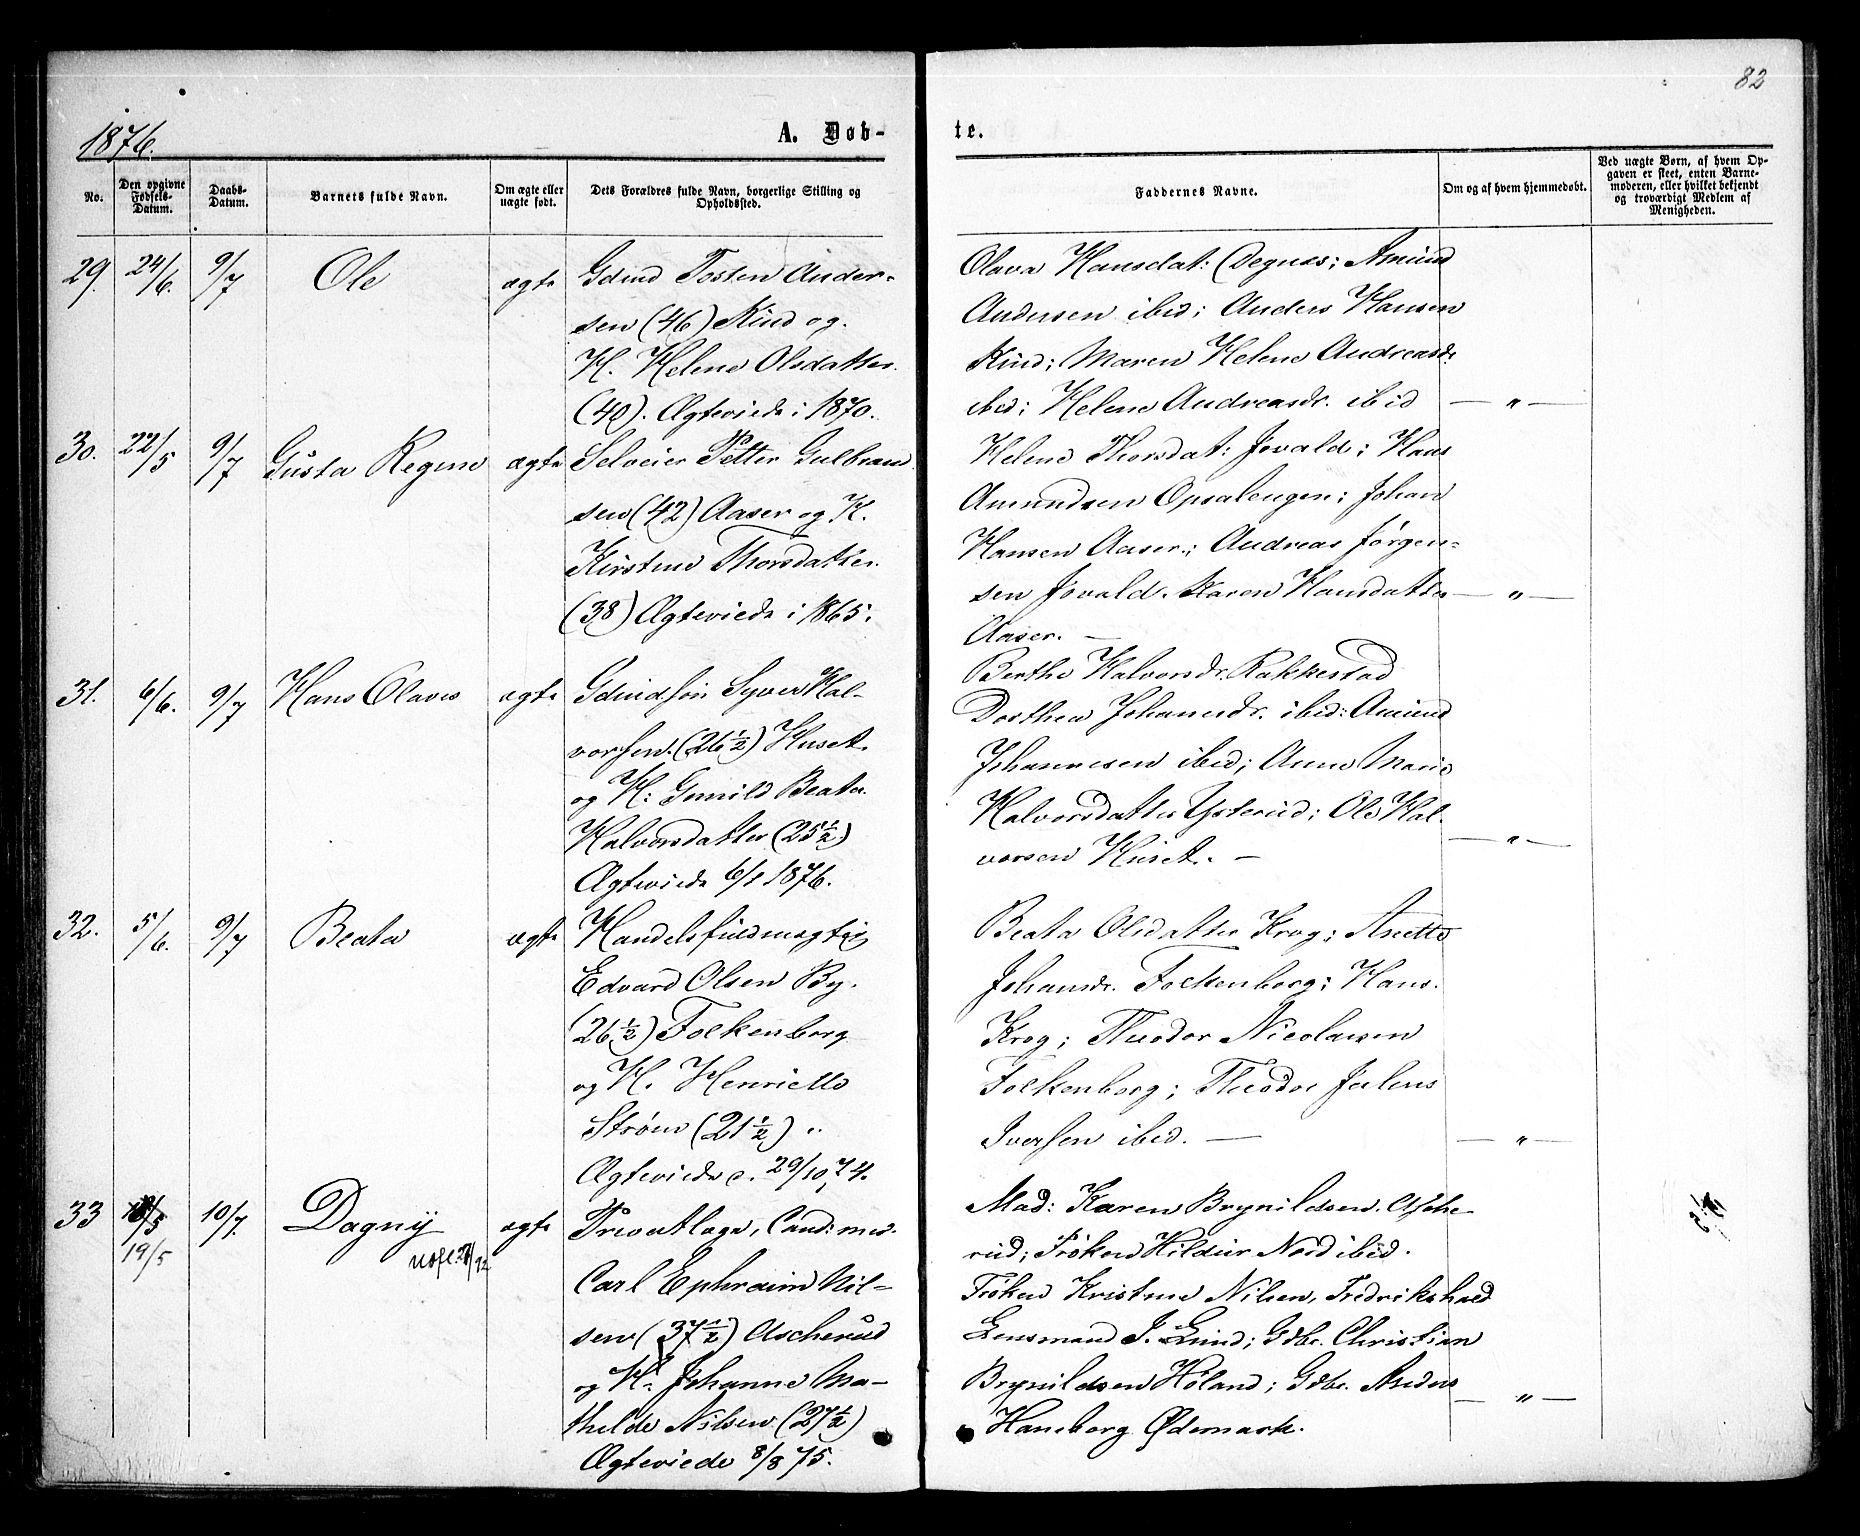 82
1876.
A. Døb-
te.
No.
Den opgivne Fødsels-Datum.
Daabs-Datum.
Barnets fulde Navn.
Om ægte eller uægte født.
Dets Forældres fulde Navn, borgerlige Stilling og Opholdssted.
Faddernes Navne.
Om og af hvem hjemmedøbt.
Ved uægte Børn, af hvem Op-
gaven er skeet, enten Barne-
moderen, eller hvilket bekjendt
og troværdigt Medlem af
Menigheden.
29. 24/6. 9/7 Ole ægte Gdmd Tosten Ander-
sen (46) Kind og
K. Helene Olsdatter
(40). Ægteviede i 1870.
Olava Hansdat: Degnæs; Amund
Andersen ibid; Anders Hansen
Kind; Maren Helene Andreasdr.
ibid; Helene Andreasdr. ibid — „ —
30. 22/5 9/7 Gusta Regine ægte Selveier Petter Gulbrand
sen (42) Aaser og K.
Kirstine Thorsdatter
(38) Ægteviede i 1865.
Helene Thorsdat: Jovald; Hans
Amundsen Opsalengen; Johan
Hansen Aaser; Andreas Jørgen-
sen Jovald. Karen Hansdatter — „ —
Aaser. —
31. 6/6. 9/7 Hans Olaves ægte Gdmdsøn Syver Hal-
vorsen (26 1/2) Huset
og K: Gunild Beata
Halvorsdatter (25 1/2)
Ægteviede 6/1 1876.
Berthe Halvorsdr. Rakkestad
Dorthea Johannesdr. ibid: Amund
Johannesen ibid; Anne Marie
Halvorsdatter Ysterud; Ole Hal-
vorsen Huset. — — „ —
32. 5/6. 9/7 Beata ægte Handelsfuldmægtig
Edvard Olsen By.
(26 1/2) Folkenborg
og K. Henriette
Strøm (21 1/2)
Ægteviede d. 29/10 74.
Beata Olsdatter Krog; Anette
Johansdr. Folkenborg; Hans
Krog; Theodor Nicolaisen
Folkenborg; Theodor Julius
Iversen ibid. — — „ —
33 19/5 10/7. Dagny ægte Privatlæge, Cand: med.
Carl Ephraim Nil-
sen (37 1/2) Ascherud
og K: Johanne Ma-
thilde Nilsen (27 1/2)
Ægteviede 8/8 75.
Mad: Karen Brynildsen. Asche-
rud; Frøken Hildur Nord ibid.
Frøken Kristine Nilsen, Fredrikshald
Lensmand J. Lund; Gdbr. Christian
Brynildsen Høland; Gdbr. Anders — „ —
Haneborg Ødemark.